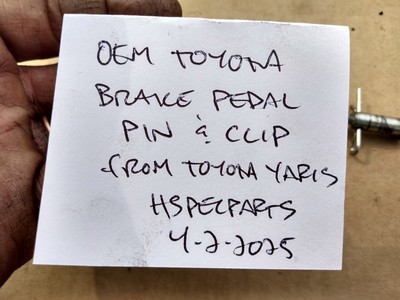 OEM TOYOTA
BRAKE PEDAL
PIN & CLIP
FROM TOYOTA YARIS
HSPECPARTS
4-2-2025